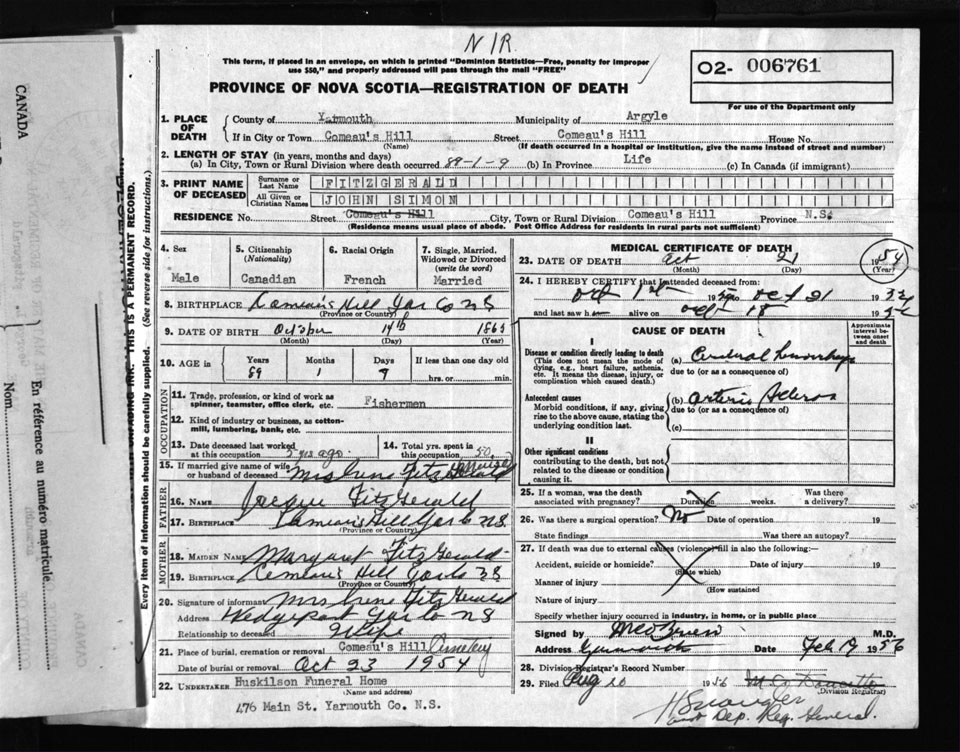 N I R.
This form, if placed in an envelope, on which is printed "Dominion Statistics—Free, penalty for improper
use $50," and properly addressed will pass through the mail "FREE"
02- 006761
PROVINCE OF NOVA SCOTIA—REGISTRATION OF DEATH
For use of the Department only
1. PLACE OF DEATH County of Yarmouth Municipality of Argyle
If in City or Town Comeau's Hill Street Comeau's Hill House No.
(Name) (If death occurred in a hospital or institution, give the name instead of street and number)
2. LENGTH OF STAY (in years, months and days)
(a) In City, Town or Rural Division where death occurred 89-1-9 (b) In Province Life (c) In Canada (if immigrant)
3. PRINT NAME OF DECEASED Surname or Last Name FITZGERALD
All Given or Christian Names JOHN SIMON
RESIDENCE No. Street Comeau's Hill City, Town or Rural Division Comeau's Hill Province N.S.
(Residence means usual place of abode. Post Office Address for residents in rural parts not sufficient)
4. Sex 5. Citizenship (Nationality) 6. Racial Origin 7. Single, Married, Widowed or Divorced (write the word)
Male Canadian French Married
8. BIRTHPLACE Comeau's Hill Yar Co NS
(Province or Country)
9. DATE OF BIRTH October 14th 1865
(Month) (Day) (Year)
10. AGE in Years Months Days If less than one day old
89 1 9 hrs. or min.
OCCUPATION
11. Trade, profession, or kind of work as
spinner, teamster, office clerk, etc. Fishermen
12. Kind of industry or business, as cotton-
mill, lumbering, bank, etc.
13. Date deceased last worked at this occupation 5 yrs ago. 14. Total yrs. spent in this occupation 50.
15. If married give name of wife
or husband of deceased Mrs Irene Fitz Gerald
FATHER
16. NAME Jacque Fitz Gerald
17. BIRTHPLACE Comeau's Hill Yar Co NS
(Province or Country)
MOTHER
18. MAIDEN NAME Margaret Fitz Gerald
19. BIRTHPLACE Comeau's Hill Yar Co NS
(Province or Country)
20. Signature of informant Mrs Irene Fitz Gerald
Address Wedgeport Yar Co NS
Relationship to deceased Wife
21. Place of burial, cremation or removal Comeau's Hill Cemetery
Date of burial or removal Oct 23 1954
22. UNDERTAKER Huskilson Funeral Home
(Name and address)
476 Main St. Yarmouth Co. N.S.
MEDICAL CERTIFICATE OF DEATH
23. DATE OF DEATH Oct 21 1954
(Month) (Day) (Year)
24. I HEREBY CERTIFY that I attended deceased from:
Oct 1st 19 to Oct 21 19
and last saw h alive on Oct 18 19
CAUSE OF DEATH
Approximate interval between onset and death
I
Disease or condition directly leading to death (a) Cerebral hemorrhage
(This does not mean the mode of
dying, e.g., heart failure, asthenia,
etc. It means the disease, injury, or
complication which caused death.)
due to (or as a consequence of)
Antecedent causes (b) arterio Scleros
Morbid conditions, if any, giving
rise to the above cause, stating the
underlying condition last.
due to (or as a consequence of)
(c)
II
Other significant conditions
contributing to the death, but not
related to the disease or condition
causing it.
25. If a woman, was the death associated with pregnancy? Duration weeks. Was there a delivery?
26. Was there a surgical operation? No Date of operation 19
State findings Was there an autopsy?
27. If death was due to external causes (violence) fill in also the following:
Accident, suicide or homicide? (State which) Date of injury 19
Manner of injury
(How sustained)
Nature of injury
Specify whether injury occurred in industry, in home, or in public place
Signed by M.D.
Address Date Feb 19 1956
28. Division Registrar's Record Number
29. Filed Aug 20 1956
(Division Registrar)
and Dep. Reg. General.
Every item of information should be carefully supplied. (See reverse side for instructions.)
THIS IS A PERMANENT RECORD.
CANADA
En référence au numéro matricule
Nom